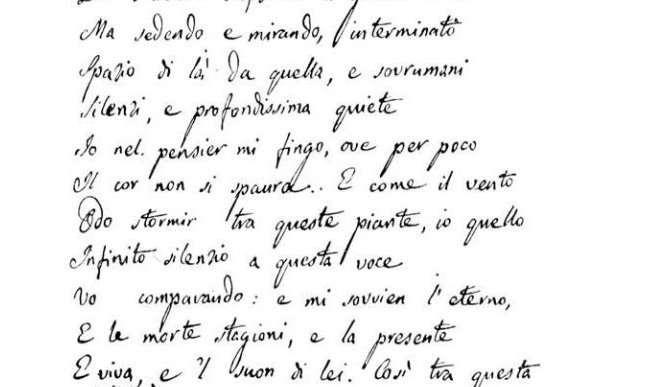 Ma sedendo e mirando, interminato
Spazio di là da quella, e sovrumani
Silenzi, e profondissima quiete
Io nel pensier mi fingo, ove per poco
Il cor non si spaura.. E come il vento
Odo stormir tra queste piante, io quello
Infinito silenzio a questa voce
Vo comparando: e mi sovvien l'eterno,
E le morte stagioni, e la presente
E viva, e 'l suon di lei. Così tra questa